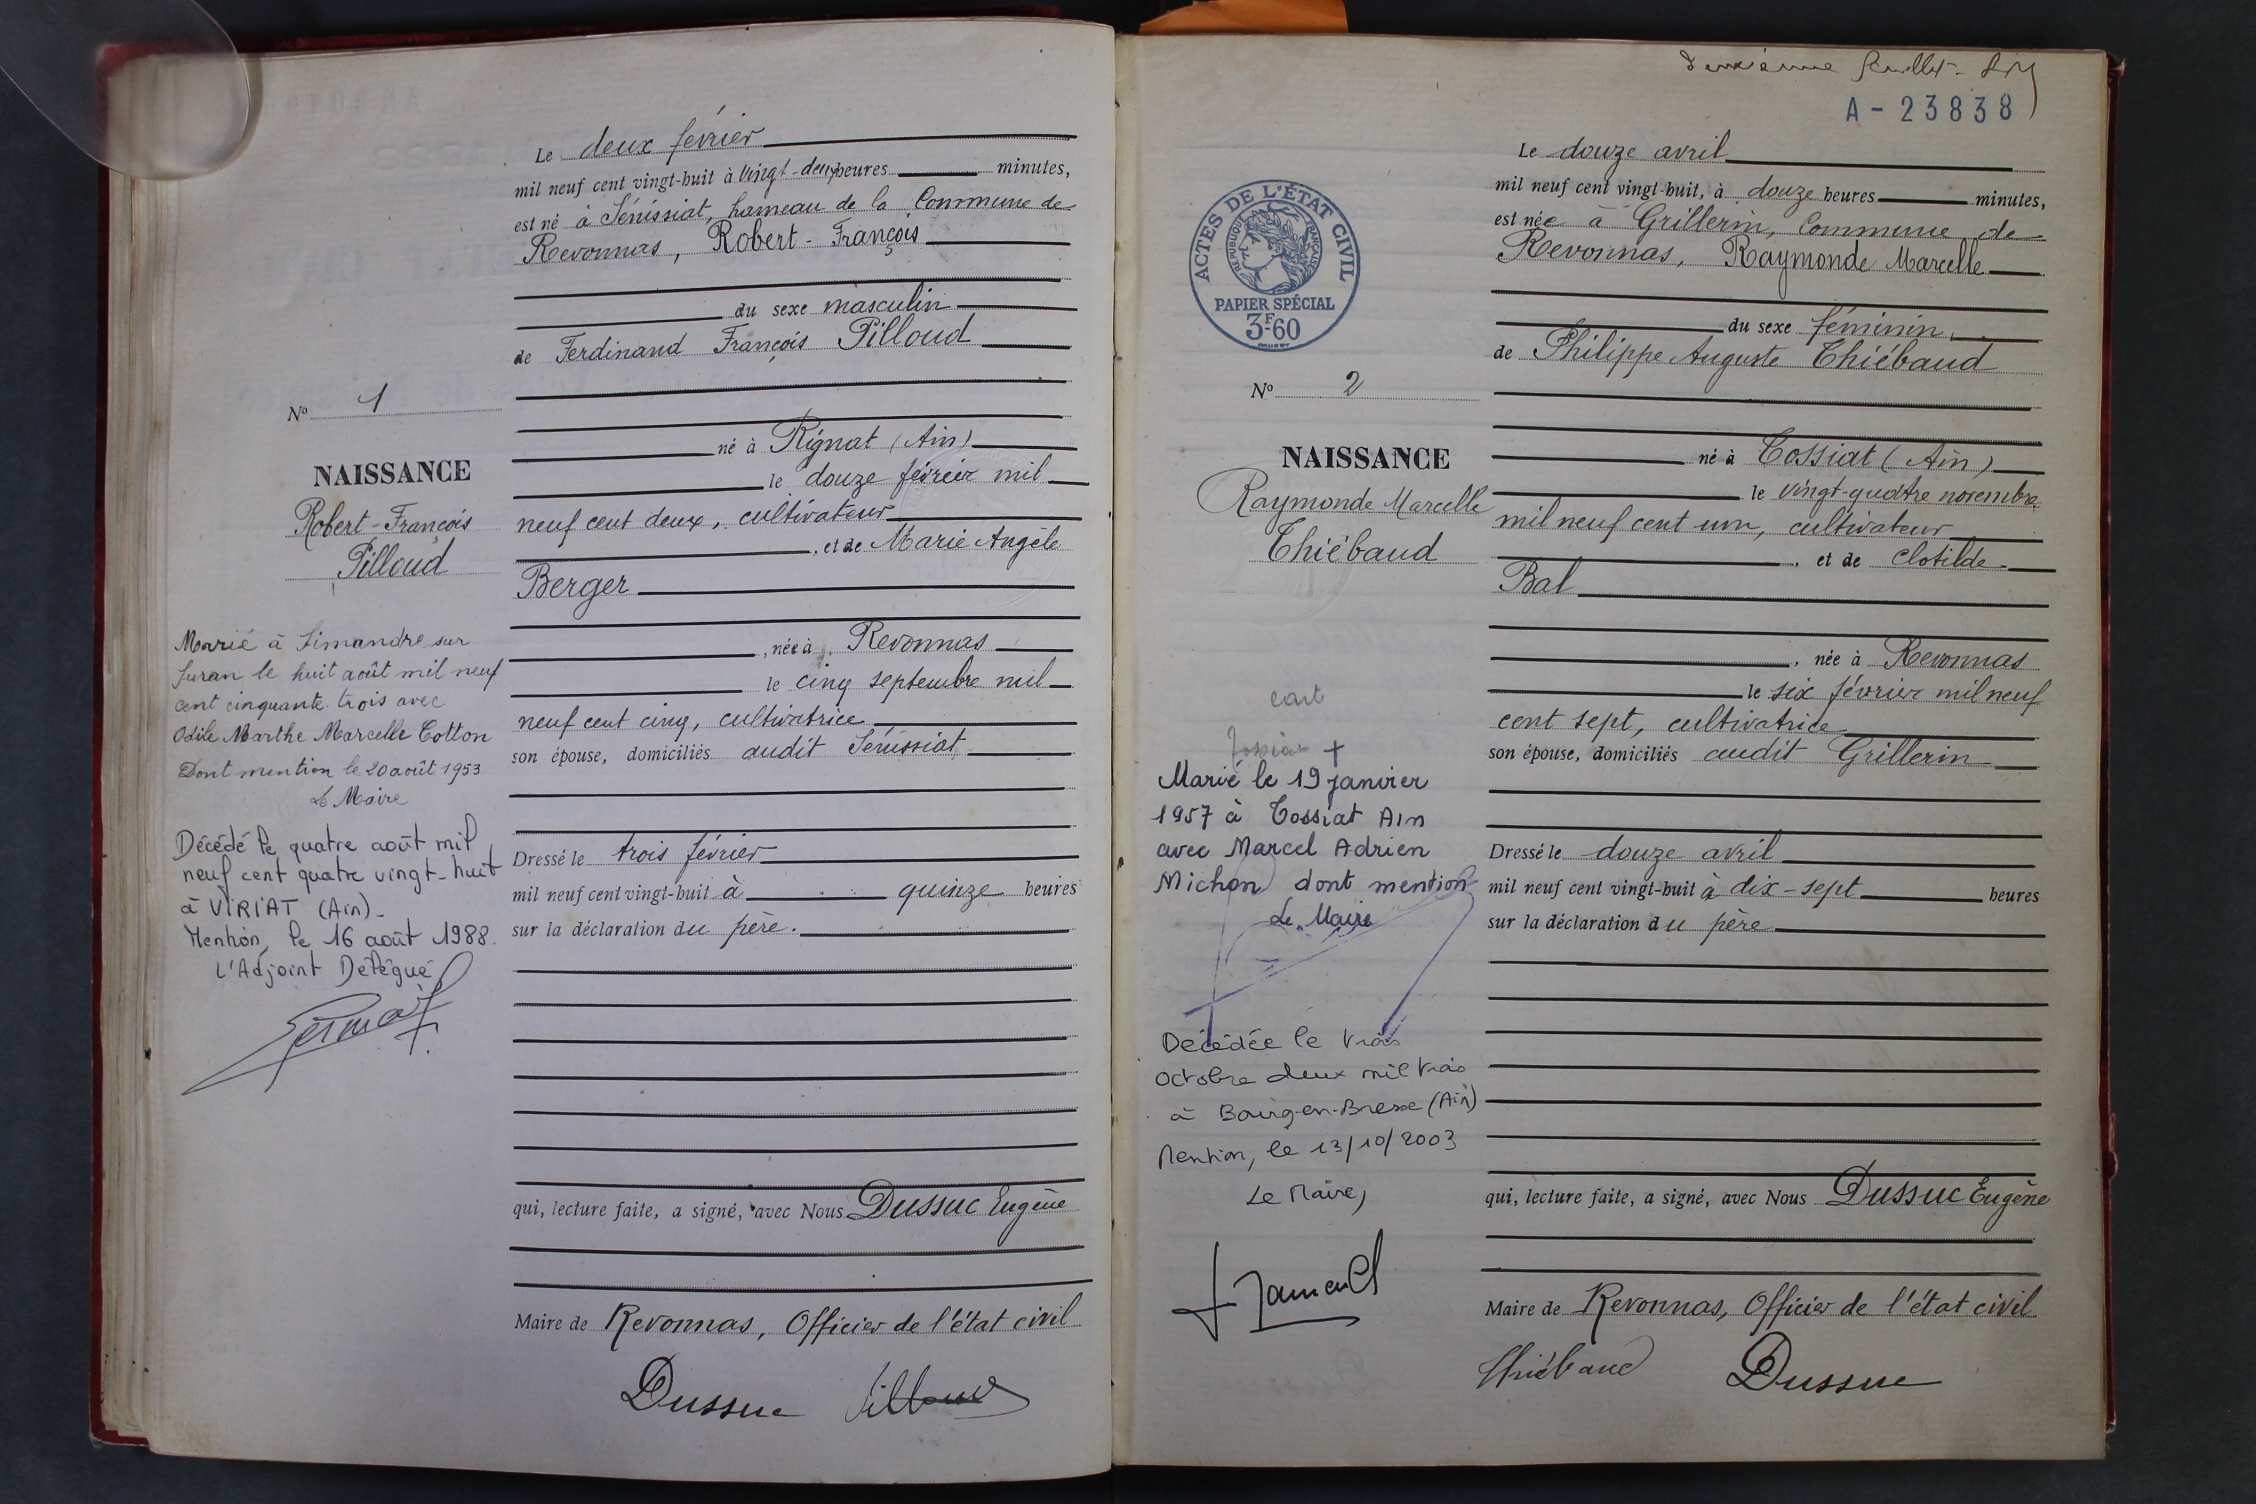 Le deux février
mil neuf cent vingt-huit à vingt-deux heures minutes,
est né à Sénissiat, hameau de la Commune de
Revonnas, Robert-François
du sexe masculin
de Ferdinand François Pilloud
né à Rignat (Ain)
le douze février mil
neuf cent deux, cultivateur
, et de Marie Angèle
Berger
, née à Revonnas
le cinq septembre mil
neuf cent cinq, cultivatrice
son épouse, domiciliés audit Sénissiat
Dressé le trois février
mil neuf cent vingt-huit à quinze heures
sur la déclaration du père.
qui, lecture faite, a signé, avec Nous Dussuc Eugène
Maire de Revonnas, Officier de l'état civil
Dussuc Pilloud
No 1
NAISSANCE
Robert-François
Pilloud
Marié à Simandre sur
Suran le huit août mil neuf
cent cinquante trois avec
Odile Marthe Marcelle Cotton
Dont mention le 20 août 1953
Le Maire
Décédé le quatre août mil
neuf cent quatre vingt-huit
à VIRIAT (Ain)-
Mention, le 16 août 1988.
L'Adjoint Délégué
Deuxième feuillet
A-23838
ACTES DE L'ÉTAT CIVIL
RÉPUBLIQUE FRANÇAISE
PAPIER SPÉCIAL
3F60
No 2
NAISSANCE
Raymonde Marcelle
Thiébaud
Marié le 19 janvier
1957 à Tossiat Ain
avec Marcel Adrien
Michon dont mention
Le Maire
Décédée le trois
octobre deux mil trois
à Bourg-en-Bresse (Ain)
Mention, le 13/10/2003
Le Maire,
Le douze avril
mil neuf cent vingt-huit, à douze heures minutes,
est née à Grillerin, Commune de
Revonnas, Raymonde Marcelle
du sexe féminin,
de Philippe Auguste Thiébaud
né à Tossiat (Ain)
le vingt-quatre novembre
mil neuf cent un, cultivateur
, et de Clotilde
Bal
, née à Revonnas
le six février mil neuf
cent sept, cultivatrice
son épouse, domiciliés audit Grillerin
Dressé le douze avril
mil neuf cent vingt-huit à dix-sept heures
sur la déclaration du père
qui, lecture faite, a signé, avec Nous Dussuc Eugène
Maire de Revonnas, Officier de l'état civil
Thiébaud Dussuc